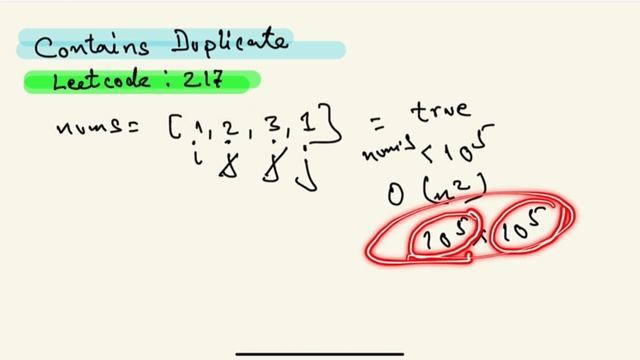 Contains Duplicate
Leetcode : 217
nums = [1, 2, 3, 1] = true
i j j j
nums < 10^5
O (n^2)
10^5 × 10^5